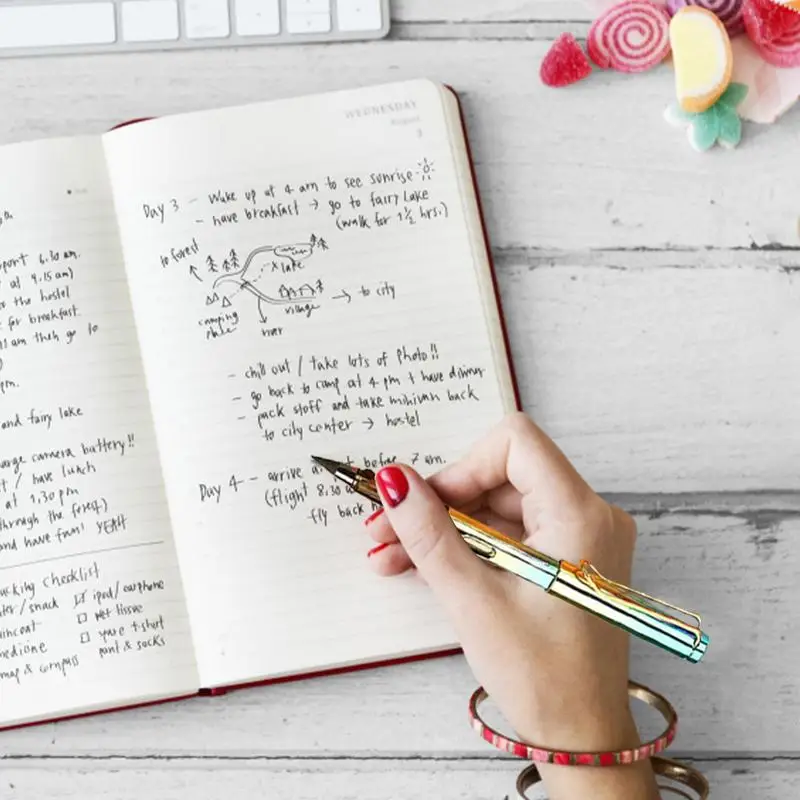 th
6.30 am.
at 4.15 am)
the hostel
for breakfast
am then go to
pm.
and fairy lake
camera battery!!
/ have lunch
at 1,30 pm
through the forest)
and have fun! YEAH
checklist
/ snack ☑ ipod/earphone
☐ wet tissue
☐ spare t-shirt
pant & socks
map & compass
WEDNESDAY
August
3
Day 3 - Wake up at 4 am to see sunrise
- have breakfast → go to fairy lake
(walk for 1 1/2 hrs.)
to forest
x lake
→ to city
camping
village
river
- chill out / take lots of photo!!
- go back to camp at 4 pm + have dinner
- pack stoff and take minivan back
to city center → hostel
Day 4 - arrive before 7 am.
(flight 8:30
fly back